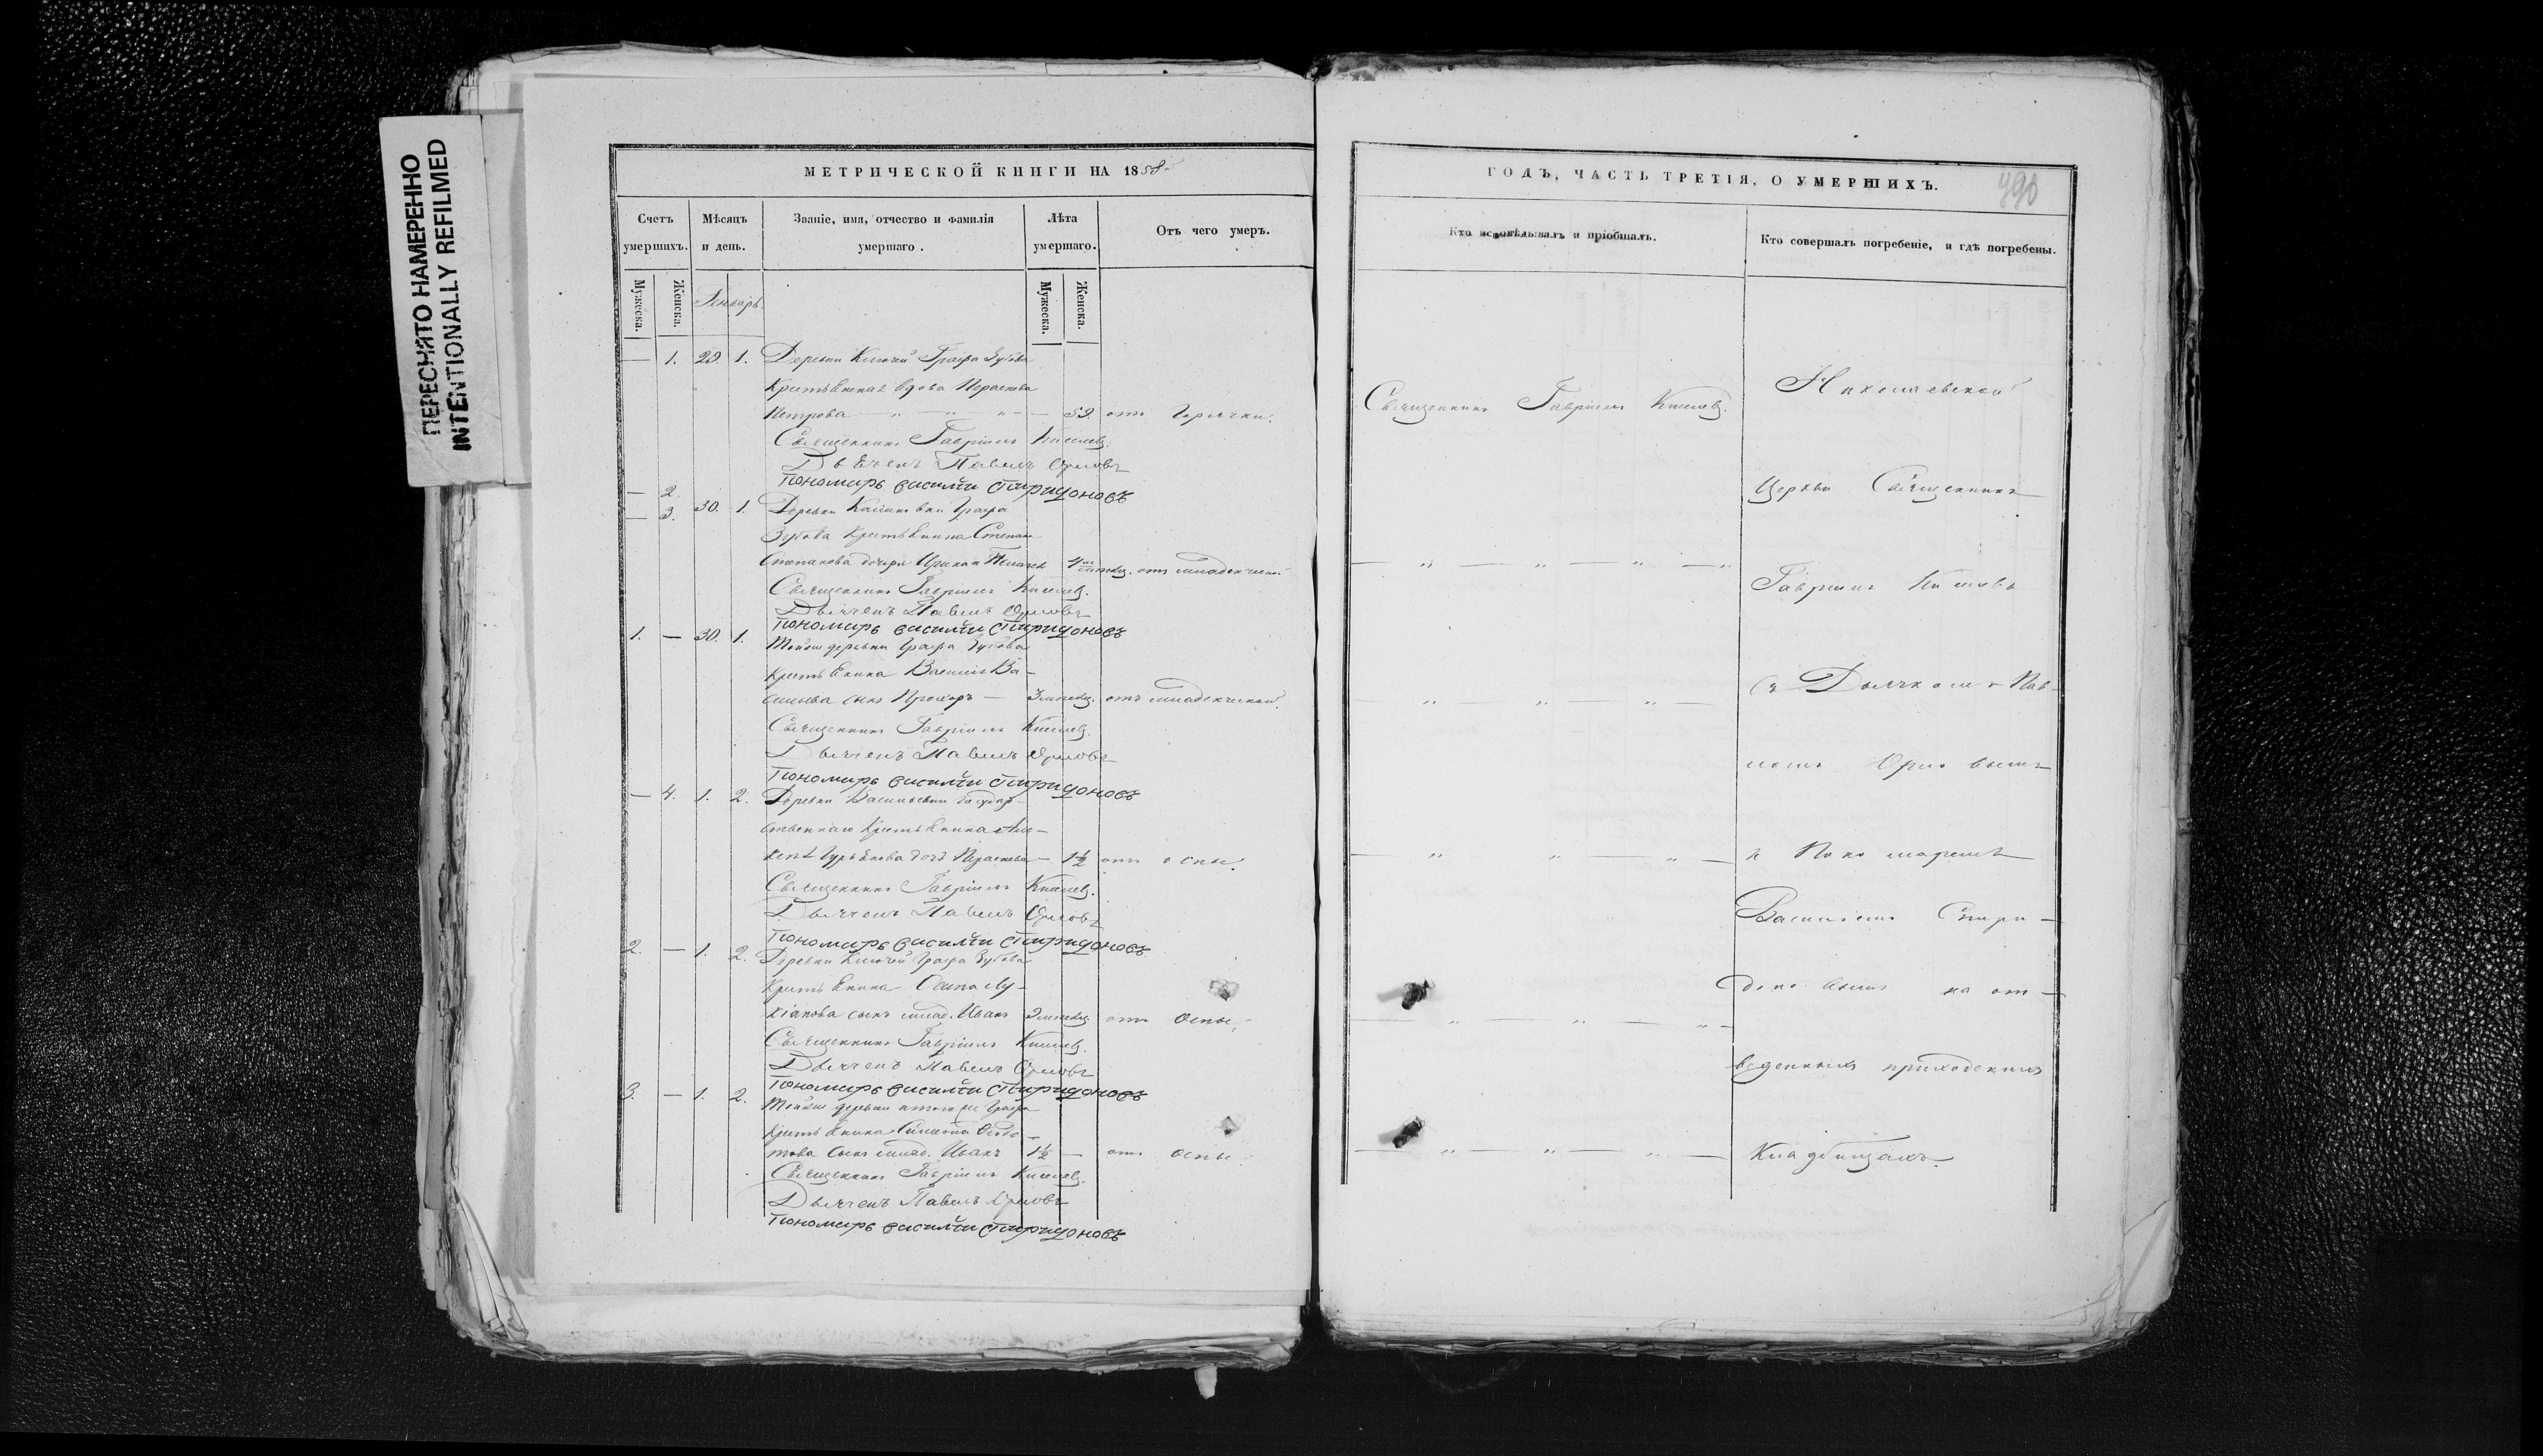 ПЕРЕСНЯТО НАМЕРЕННО
INTENTIONALLY REFILMED
МЕТРИЧЕСКОЙ КНИГИ НА 1858
Счетъ умершихъ.
Мѣсяцъ и день.
Званіе, имя, отчество и фамилія умершаго.
Лѣта умершаго.
Отъ чего умеръ.
Мужеска.
Женска.
Генварь
Мужеска.
Женска.
— 1. 29. 1. Деревни Ключей Графа Зубова
Крестьянская вдова Параскева
Петрова — 59. отъ Горячки.
Священникъ Гавріилъ
Дьячекъ Павелъ Орловъ
Пономарь Василій Спиридоновъ
— 2.
— 3. 30. 1. Деревни Графа
Зубова Крестьянина Степана
Степанова дочери отъ младенческой
Священникъ Гавріилъ
Дьячекъ Павелъ Орловъ
Пономарь Василій Спиридоновъ
1. — 30. 1. Тойже деревни Графа Зубова
Крестьянина Василія Ва-
сильева сынъ — 3 отъ младенческой.
Священникъ Гавріилъ
Дьячекъ Павелъ Орловъ
Пономарь Василій Спиридоновъ
— 4. 1. 2. Деревни Васильевки Государ-
ственнаго Крестьянина Але-
дочь Параскева — 1½ отъ оспы.
Священникъ Гавріилъ
Дьячекъ Павелъ Орловъ
Пономарь Василій Спиридоновъ
2. — 1. 2. Деревни Ключей Графа Зубова
Крестьянина Осипа Лу-
кіанова сынъ млад. Иванъ отъ Оспы.
Священникъ Гавріилъ
Дьячекъ Павелъ Орловъ
Пономарь Василій Спиридоновъ
3. — 1. 2. Тойже деревни Графа
Крестьянина
това сынъ млад. Иванъ 1½ — отъ Оспы.
Священникъ Гавріилъ
Дьячекъ Павелъ Орловъ
Пономарь Василій Спиридоновъ
ГОДЪ, ЧАСТЬ ТРЕТІЯ, О УМЕРШИХЪ.
490
Кто исповѣдывалъ и пріобщалъ.
Кто совершалъ погребеніе, и гдѣ погребены.
Священникъ Гавріилъ
Николаевской
Церкви Священникъ
Гавріилъ
съ Дьячкомъ Пав-
ломъ Орловымъ
и Пономаремъ
Василіемъ Спири-
доновымъ на от-
веденныхъ приходскихъ
Кладбищахъ.